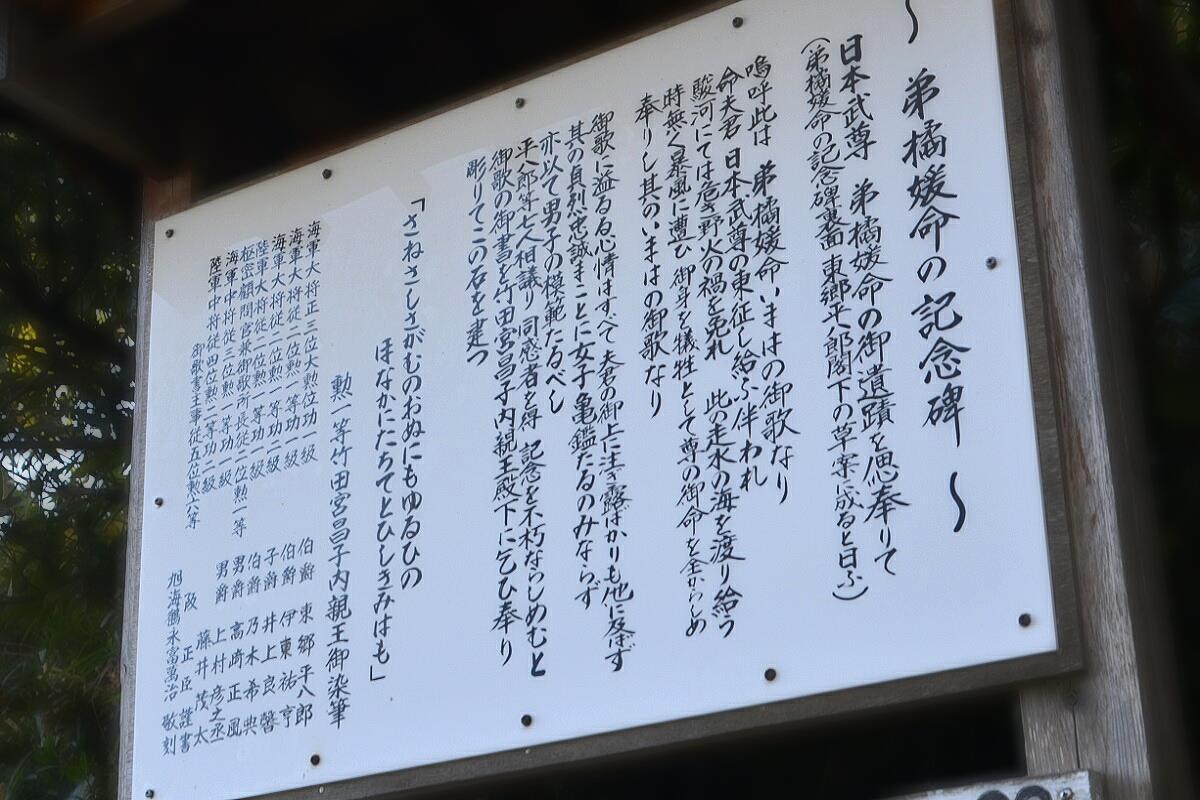 ～ 弟橘媛命の記念碑 ～
日本武尊 弟橘媛命の御遺蹟を偲奉りて
（弟橘媛命の記念碑裏面 東郷平八郎閣下の草案に成ると曰ふ）
嗚呼此は 弟橘媛命いまはの御歌なり
命夫君 日本武尊の東征し給ふ伴われ
駿河にては危き野火の禍を免れ 此の走水の海を渡り給う
時無く暴風に遭ひ 御身を犠牲として尊の御命を全からしめ
奉りし其のいまはの御歌なり
御歌に溢るる心情はすべて夫君の御上に注ぎ露ばかりも他に及ばず
其の貞烈忠誠まことに女子亀鑑たるのみならず
亦以て男子の模範たるべし
平八郎等七人相議り 同感者を得 記念を不朽ならしめむと
御歌の御書を竹田宮昌子内親王殿下に乞ひ奉り
彫りてこの石を建つ
「さねさしさがむのおぬにもゆるひの
ほなかにたちてとひしきみはも」
勲一等竹田宮昌子内親王御染筆
海軍大将正三位大勲位功一級 伯爵 東郷平八郎
海軍大将従二位勲一等功一級 伯爵 伊東祐亨
海軍大将従二位勲一等功二級 子爵 井上良馨
陸軍大将従二位勲一等功一級 伯爵 乃木希典
枢密顧問官兼御歌所長従二位勲一等 男爵 高崎正風
海軍中将従三位勲一等功一級 男爵 上村彦之丞
陸軍中将従四位勲二等功二級 藤井茂太
御歌書主事従五位勲六等 阪正臣謹書
旭海鶴永富萬治 敬刻